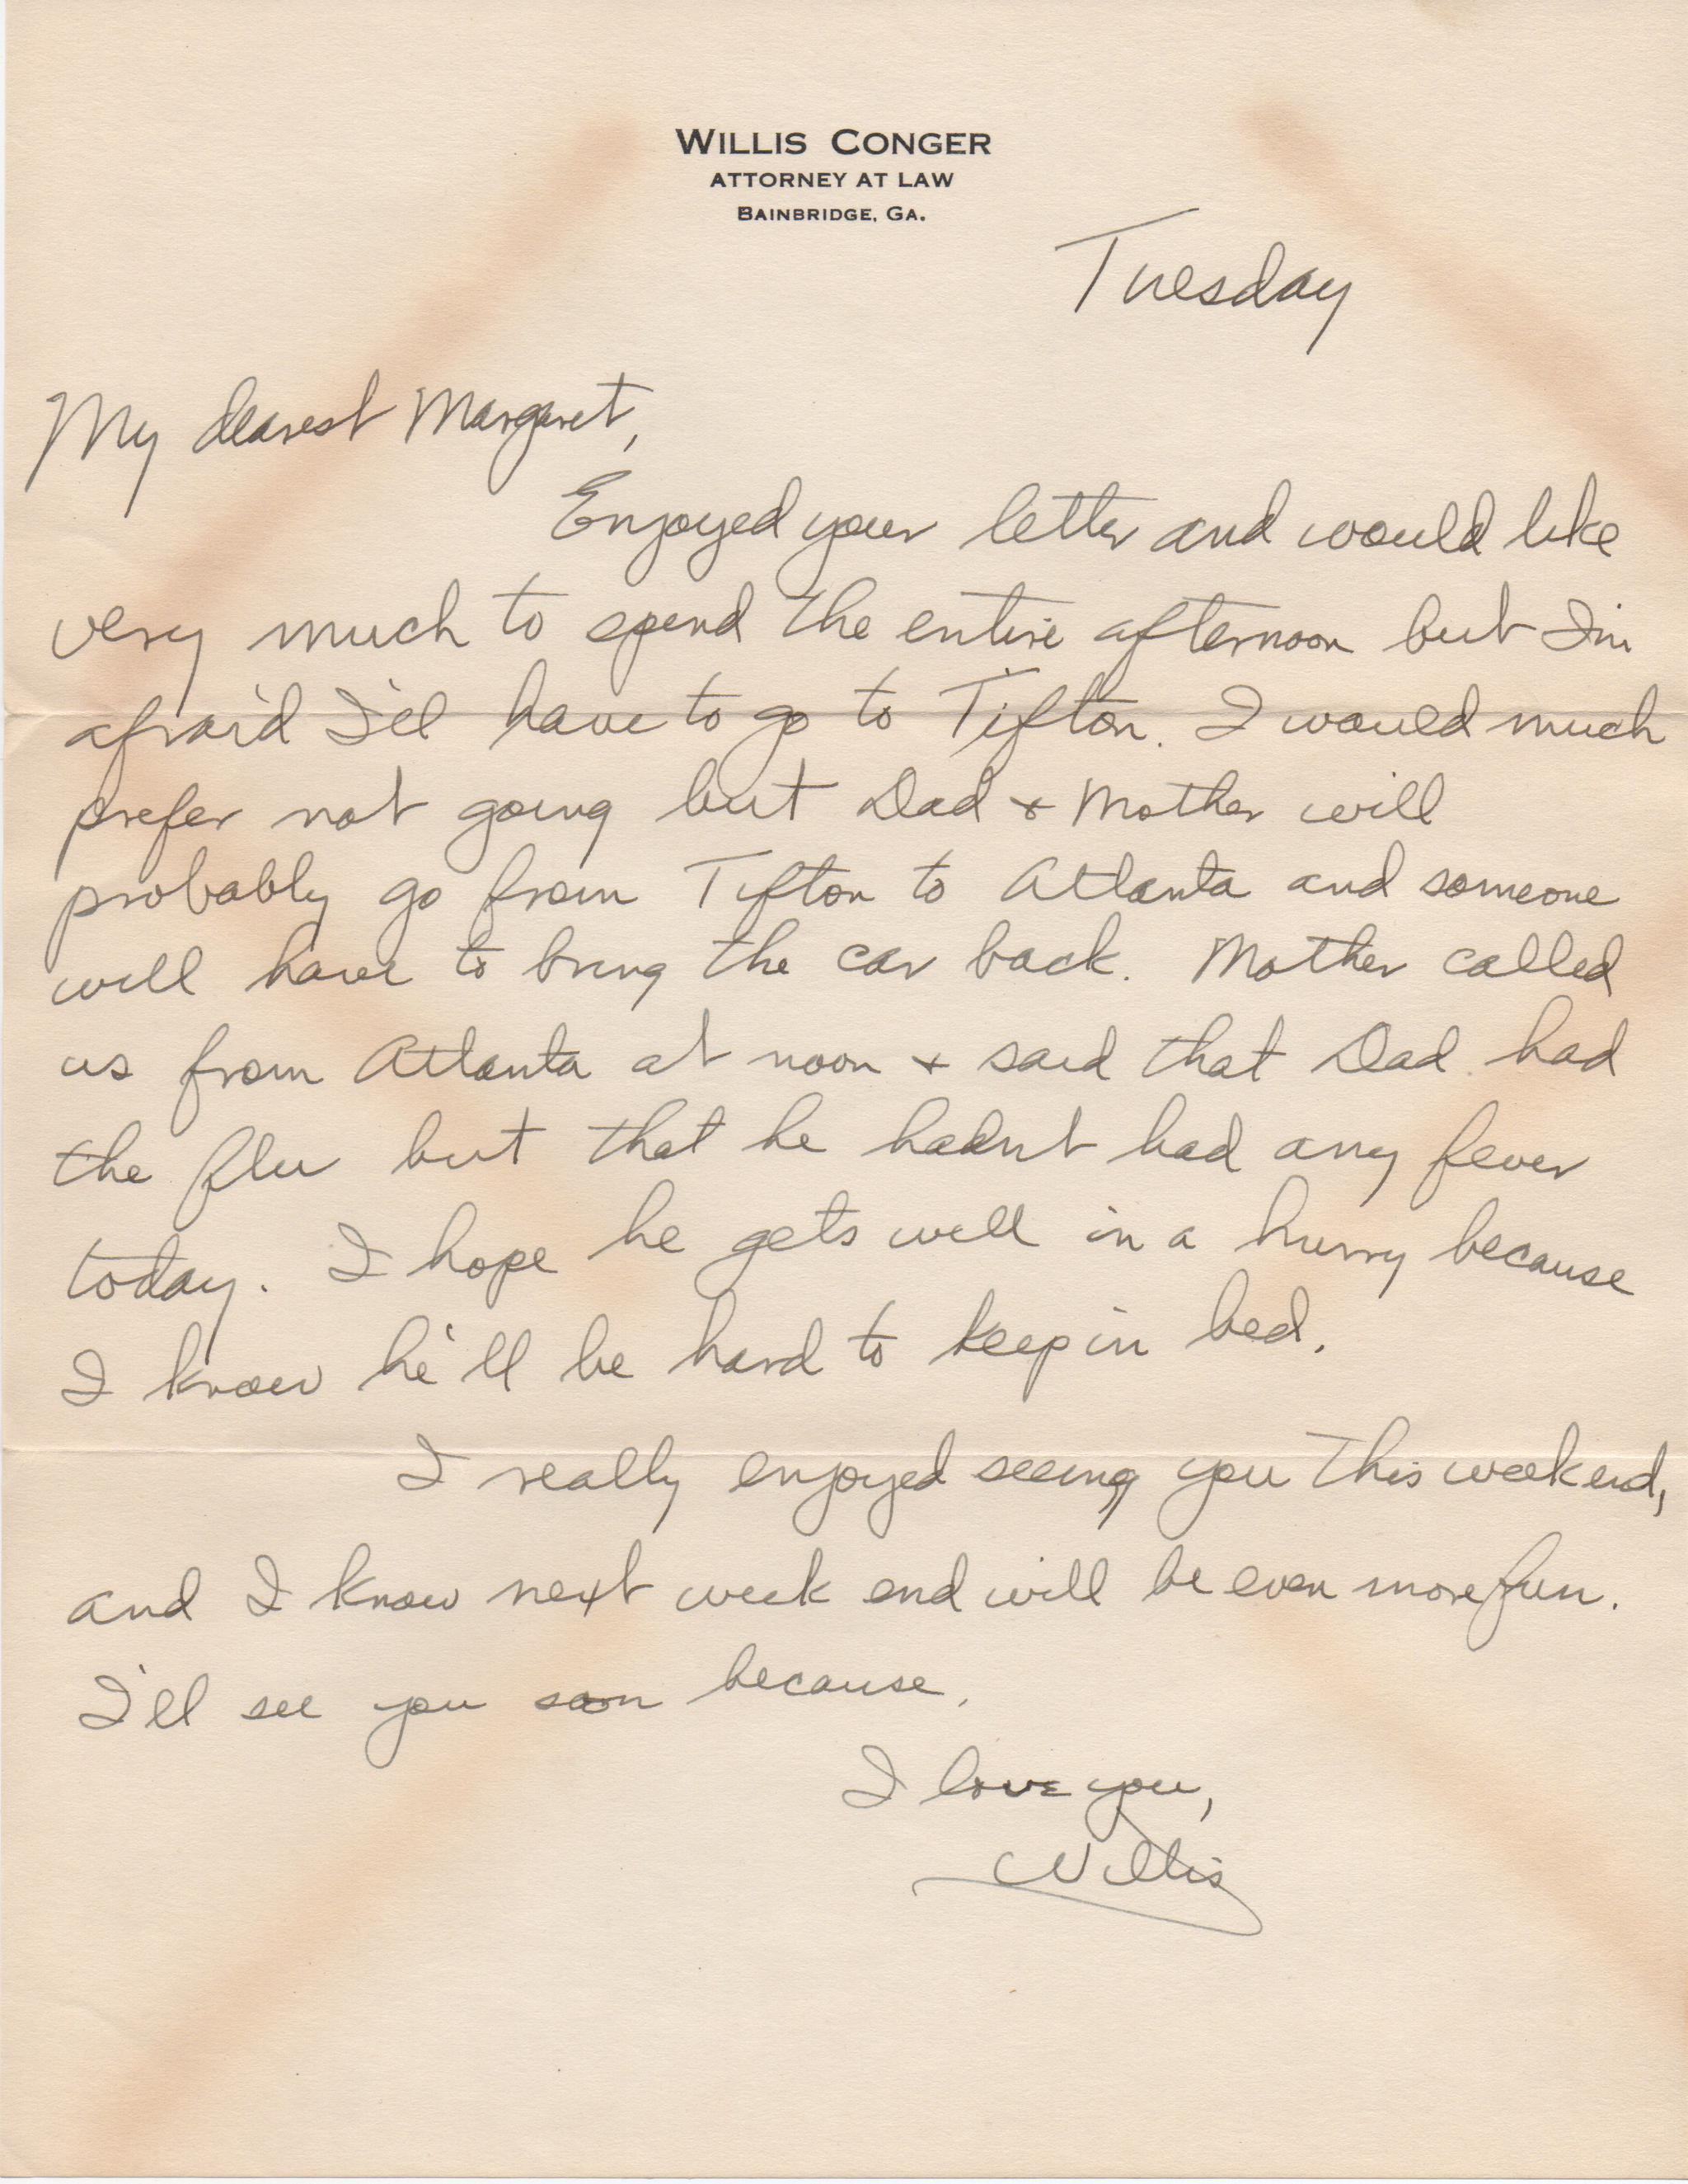 WILLIS CONGER
ATTORNEY AT LAW
BAINBRIDGE, GA.
Tuesday
My dearest Margaret,
Enjoyed your letter and would like
very much to spend the entire afternoon but I'm
afraid I'll have to go to Tifton. I would much
prefer not going but Dad & Mother will
probably go from Tifton to Atlanta and someone
will have to bring the car back. Mother called
us from Atlanta at noon & said that Dad had
the flu but that he hadn't had any fever
today. I hope he gets well in a hurry because
I know he'll be hard to keep in bed.
I really enjoyed seeing you this weekend,
and I know next week end will be even more fun.
I'll see you soon because,
I love you,
Willis